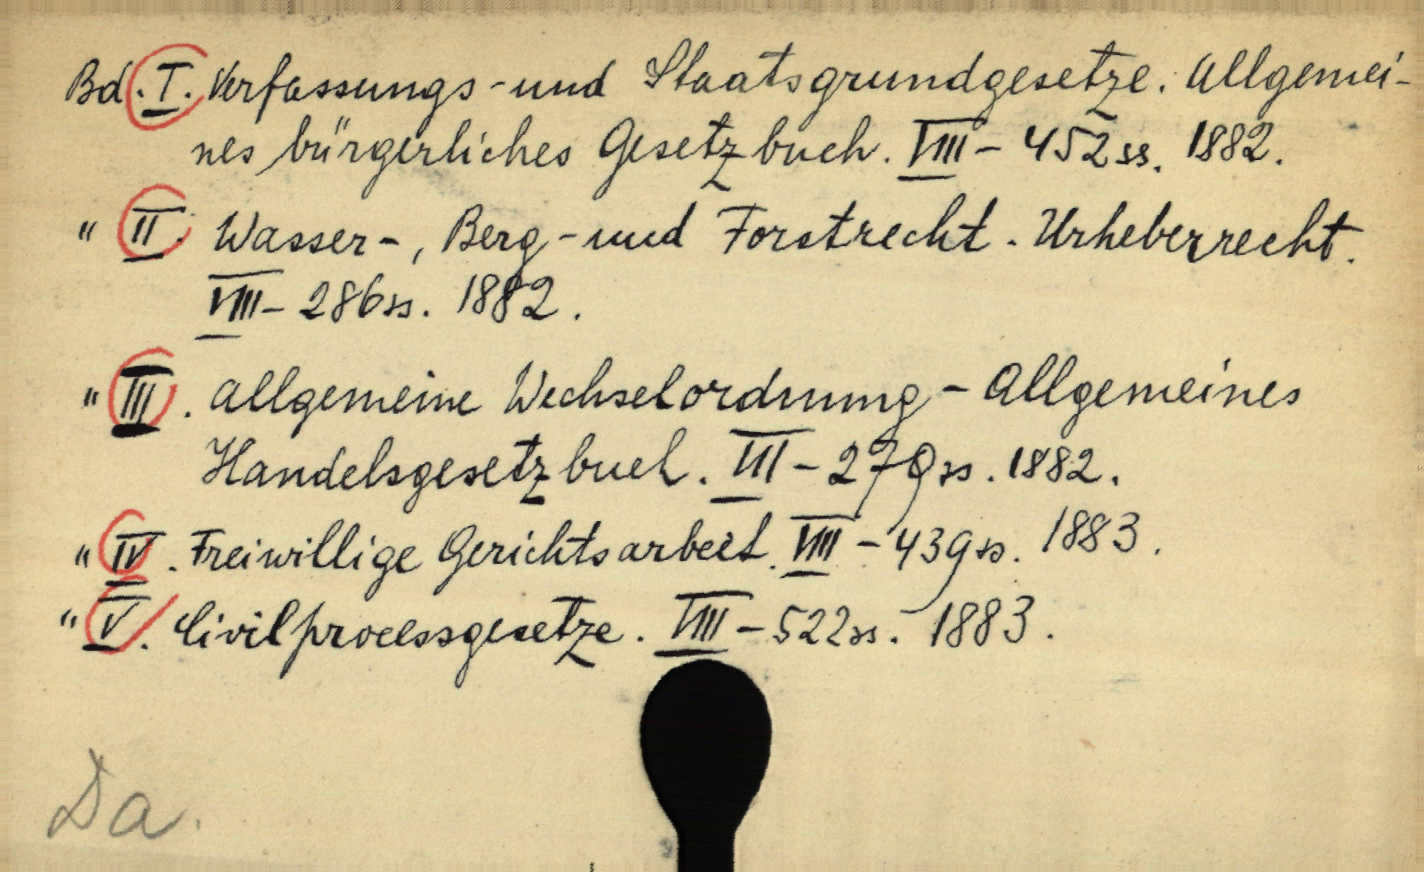 Bd. I. Verfassungs-und Staatsgrundgesetze. Allgemei-
nes bürgerliches Gesetzbuch. VIII - 452 ss. 1882.
" II. Wasser-, Berg-und Forstrecht. Urheberrecht.
VIII - 286 ss. 1882.
" III. Allgemeine Wechselordnung - Allgemeines
Handelsgesetzbuch. VIII - 279 ss. 1882.
" IV. Freiwillige Gerichtsarbeit. VIII - 439 ss. 1883.
" V. Civilprocessgesetze. VIII - 522 ss. 1883.
Da.